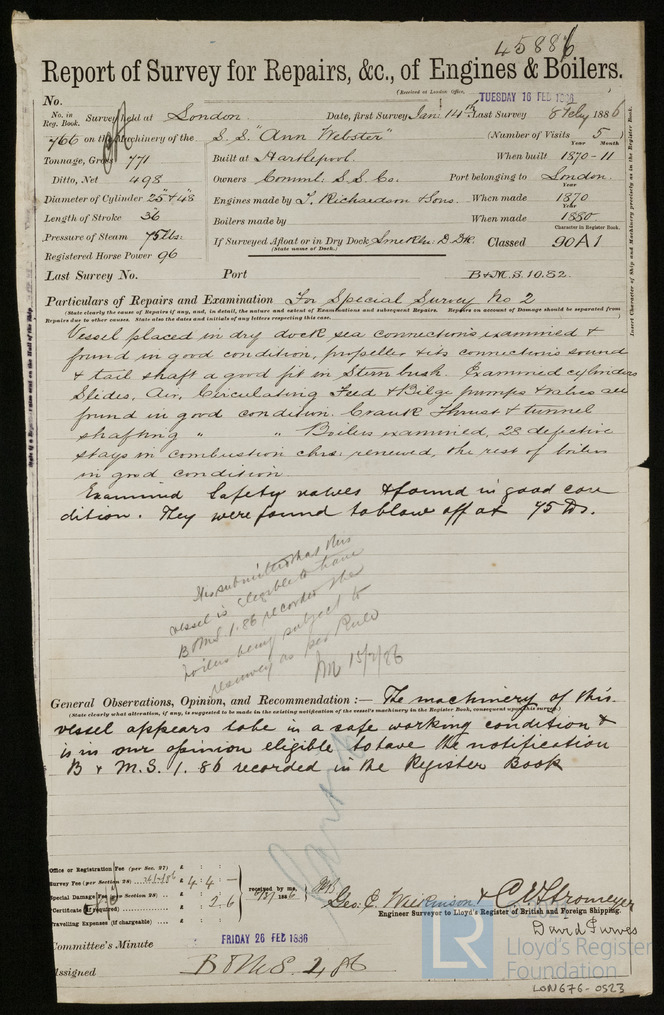 45886
Report of Survey for Repairs, &c., of Engines & Boilers.
(Received at London Office,
TUESDAY 16 FEB 1886
No.
No. in Reg. Book. Survey held at London Date, first Survey Jan: 14th Last Survey 8 Feby 1886
766 on the Machinery of the S.S. "Ann Webster" (Number of Visits 5)
Tonnage, Gross 771 Built at Hartlepool. When built Year Month 1870-11
Ditto, Net 498 Owners Comml. S.S. Co. Port belonging to London.
Diameter of Cylinder 25" & 48 Engines made by T. Richardson & Sons When made Year 1870
Length of Stroke 36 Boilers made by When made Year 1880
Pressure of Steam 75 lbs. If Surveyed Afloat or in Dry Dock D. Dk. Classed Character in Register Book. 90A1
(State name of Dock.)
Registered Horse Power 96
Last Survey No. Port B&M.S.10.82.
Particulars of Repairs and Examination For Special Survey No 2
(State clearly the cause of Repairs if any, and, in detail, the nature and extent of Examinations and subsequent Repairs. Repairs on account of Damage should be separated from
Repairs due to other causes. State also the dates and initials of any letters respecting this case.
Vessel placed in dry dock sea connections examined &
found in good condition, propeller & its connections sound
& tail shaft a good fit in Stern bush. Examined cylinders
Slides, Air, Circulating Feed & Bilge pumps & valves all
found in good condition. Crank Thrust & tunnel
shafting " " Boilers examined, 28 defective
stays in combustion chrs. renewed, the rest of boilers
in good condition
Examined Safety valves & found in good con
dition. They were found to blow off at 75 lbs.
It is submitted that this
vessel is eligible to have
B & MS 1.86 recorded the
boilers being subject to
resurvey as per Rule
15/2/86
General Observations, Opinion, and Recommendation :— The machinery of this
(State clearly what alteration, if any, is suggested to be made in the existing notification of the vessel's machinery in the Register Book, consequent upon this survey.)
vessel appears to be in a safe working condition &
is in our opinion eligible to have the notification
B & M.S. 1. 86 recorded in the Register Book
Office or Registration Fee (per Sec. 27) £ : :
Survey Fee (per Section 28) £ 4 : 4 : —
Special Damage Fee (per Section 28) £ : :
Certificate (if required) : 2 . 6
Travelling Expenses (if chargeable)
received by me,
Geo. C. Wilkinson & C. E. Stromeyer
Engineer Surveyor to Lloyd's Register of British and Foreign Shipping.
David Purves
Committee's Minute FRIDAY 26 FEB 1886
Assigned B & MS 2, 86
Insert Character of Ship and Machinery precisely as in the Register Book.
LR
Lloyd's Register
Foundation
LON676-0523